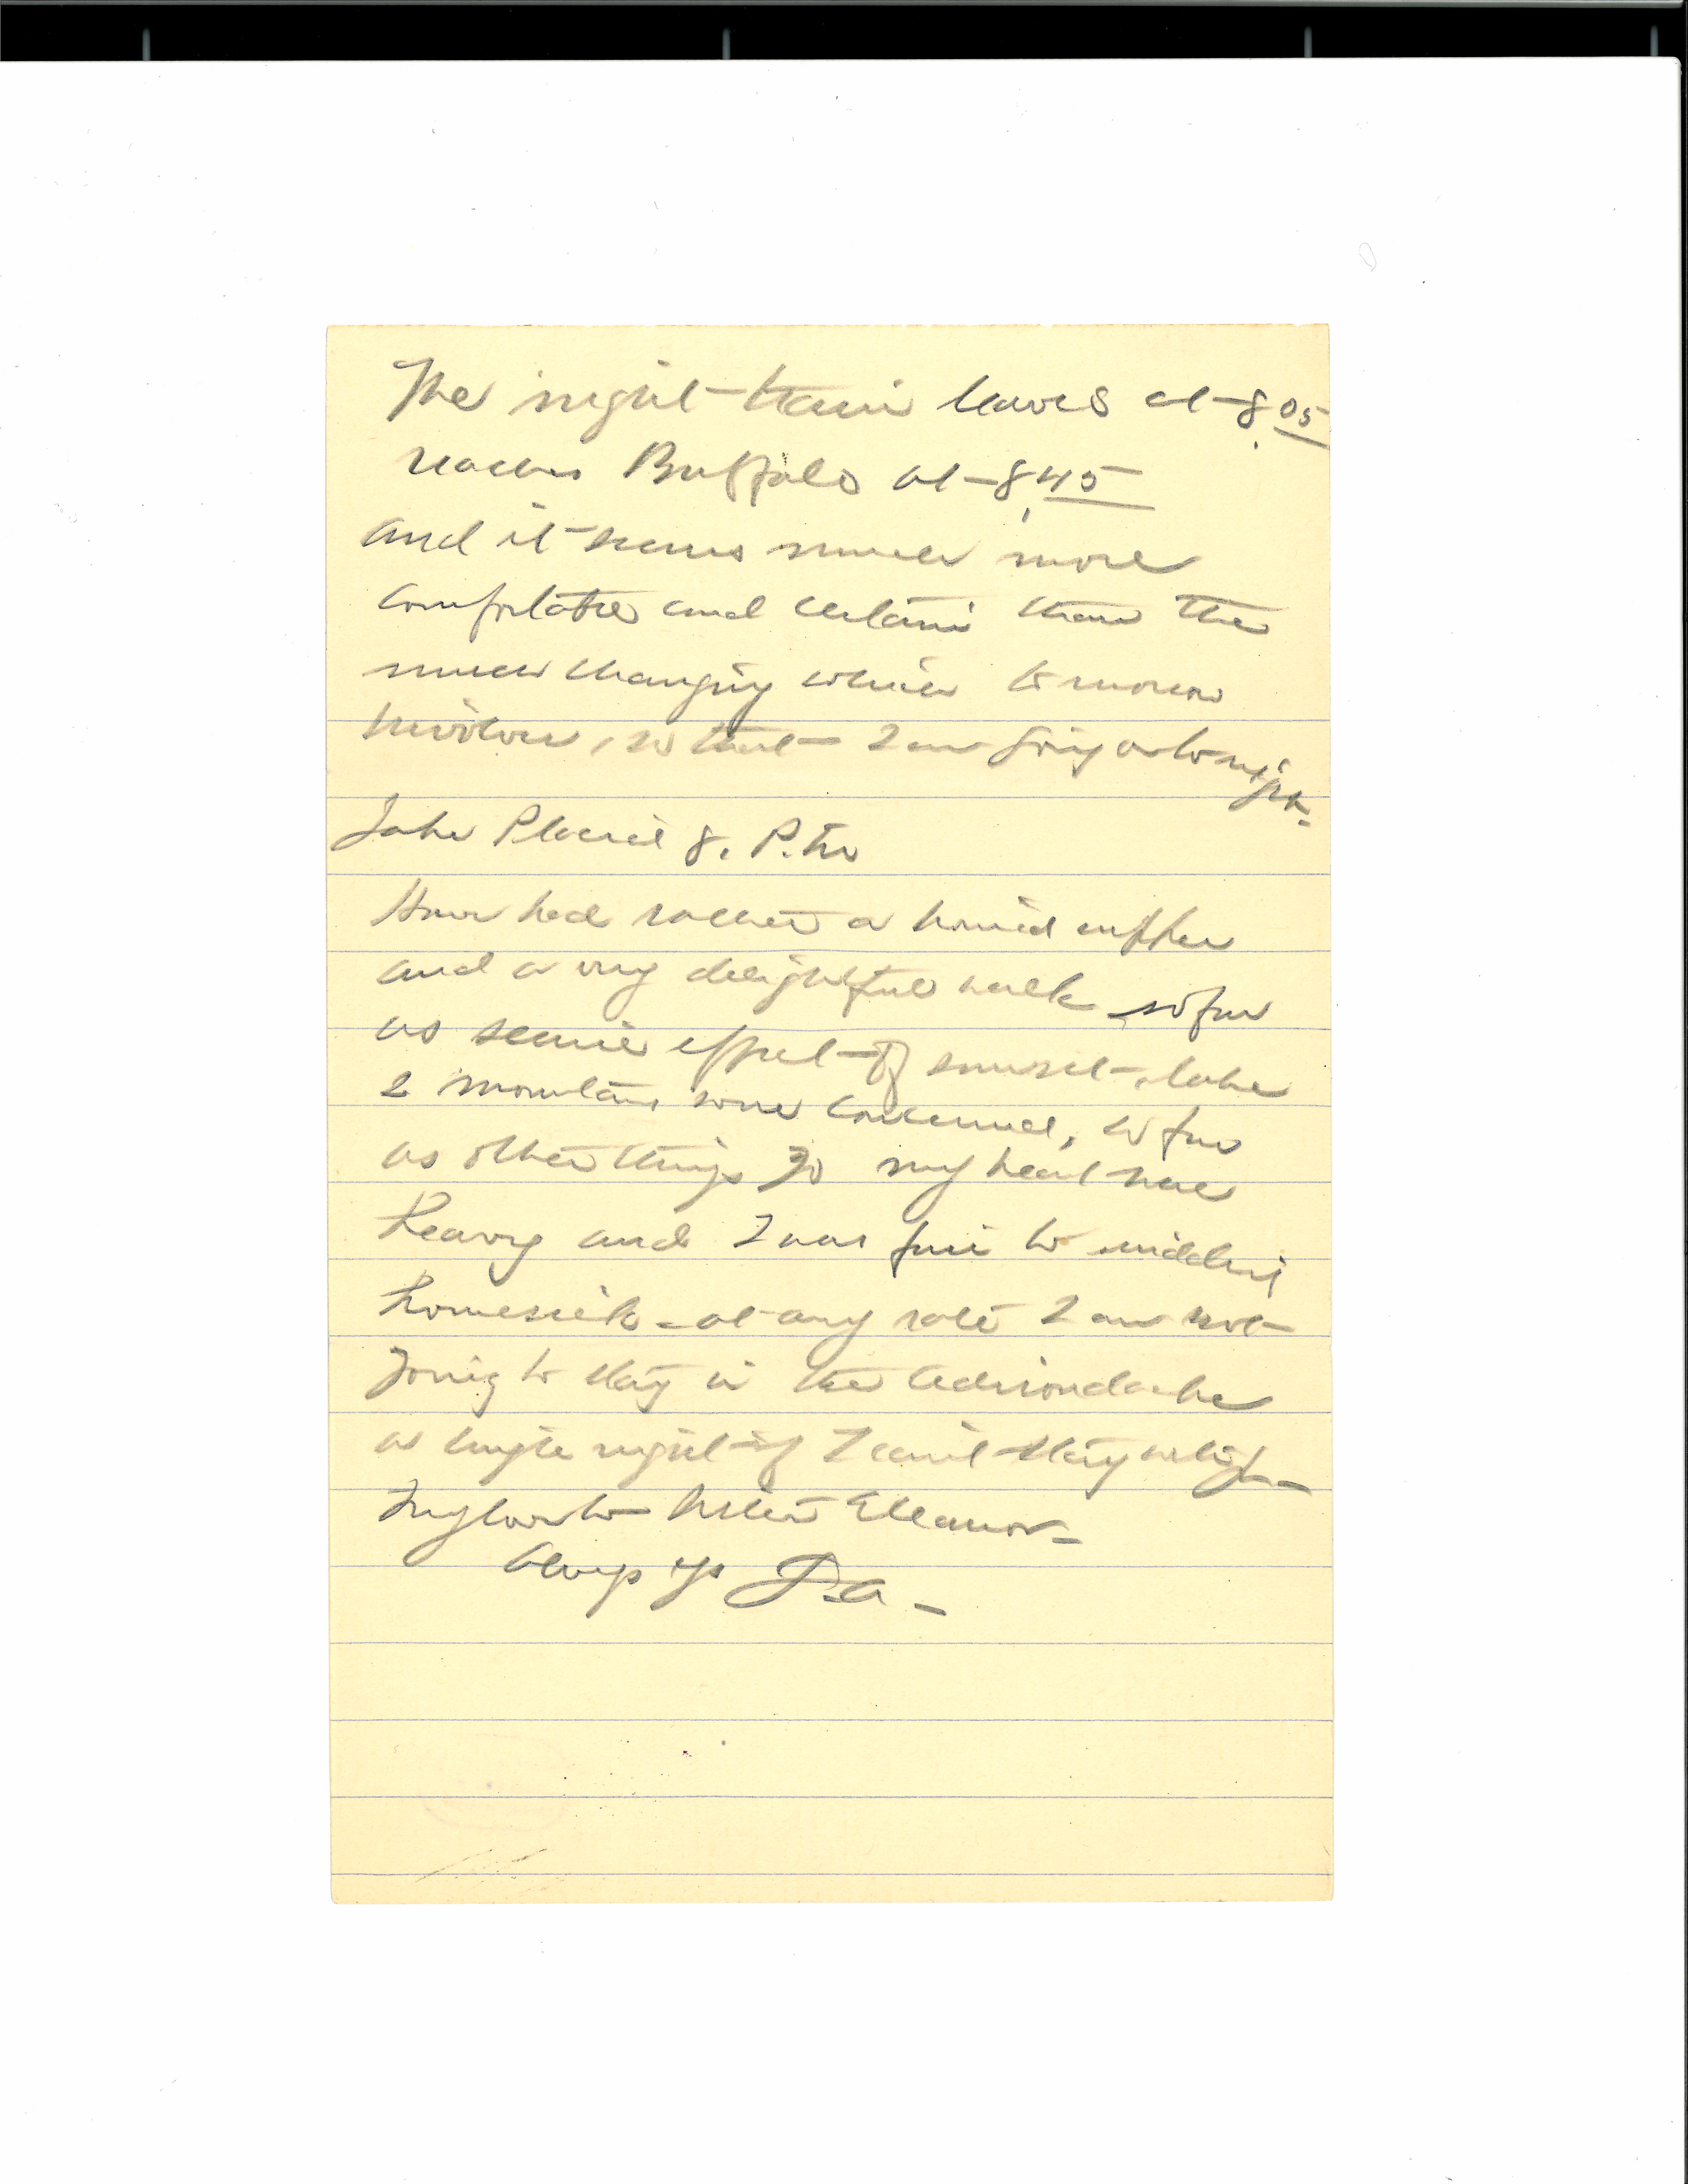 The night train leaves at 8.05
reaches Buffalo at 8.45
and it seems much more
comfortable and certain than the
much changing which tomorrow
involves, so that I am going on tonight.
Lake Placid 8. P.M
Have had rather a horrid supper
and a very delightful walk so far
as scenic effect of sunset, lake
& mountains were concerned, so far
as other things go my heart was
heavy and I was fair to middling
homesick - at any rate I am not
going to stay in the Adirondacks
a single night if I can't stay
My love to Eleanor -
Always yrs J.A -